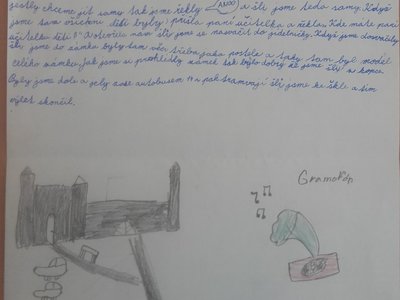 jestly chceme jít samy tak jsme řekly ANO! a šli jsme teda samy. Když
jsme tam všichni děti byly přišla paní učitelka a řekla. Kde máte paní
učitelku děti 5.
nám šli jsme se nasvačit do jídelničky. Když jsme dosvačily
šli jsme do zámku byly tam
postele a taky tam byl model
celého zámku. Jak jsme si prohlédly zámek tak bylo dobrý že jsme šly z kopce.
Byly jsme dole a jely zase autobusem
a pak tramvají šli jsme ke škle a tím
výlet skončil.
Gramofón